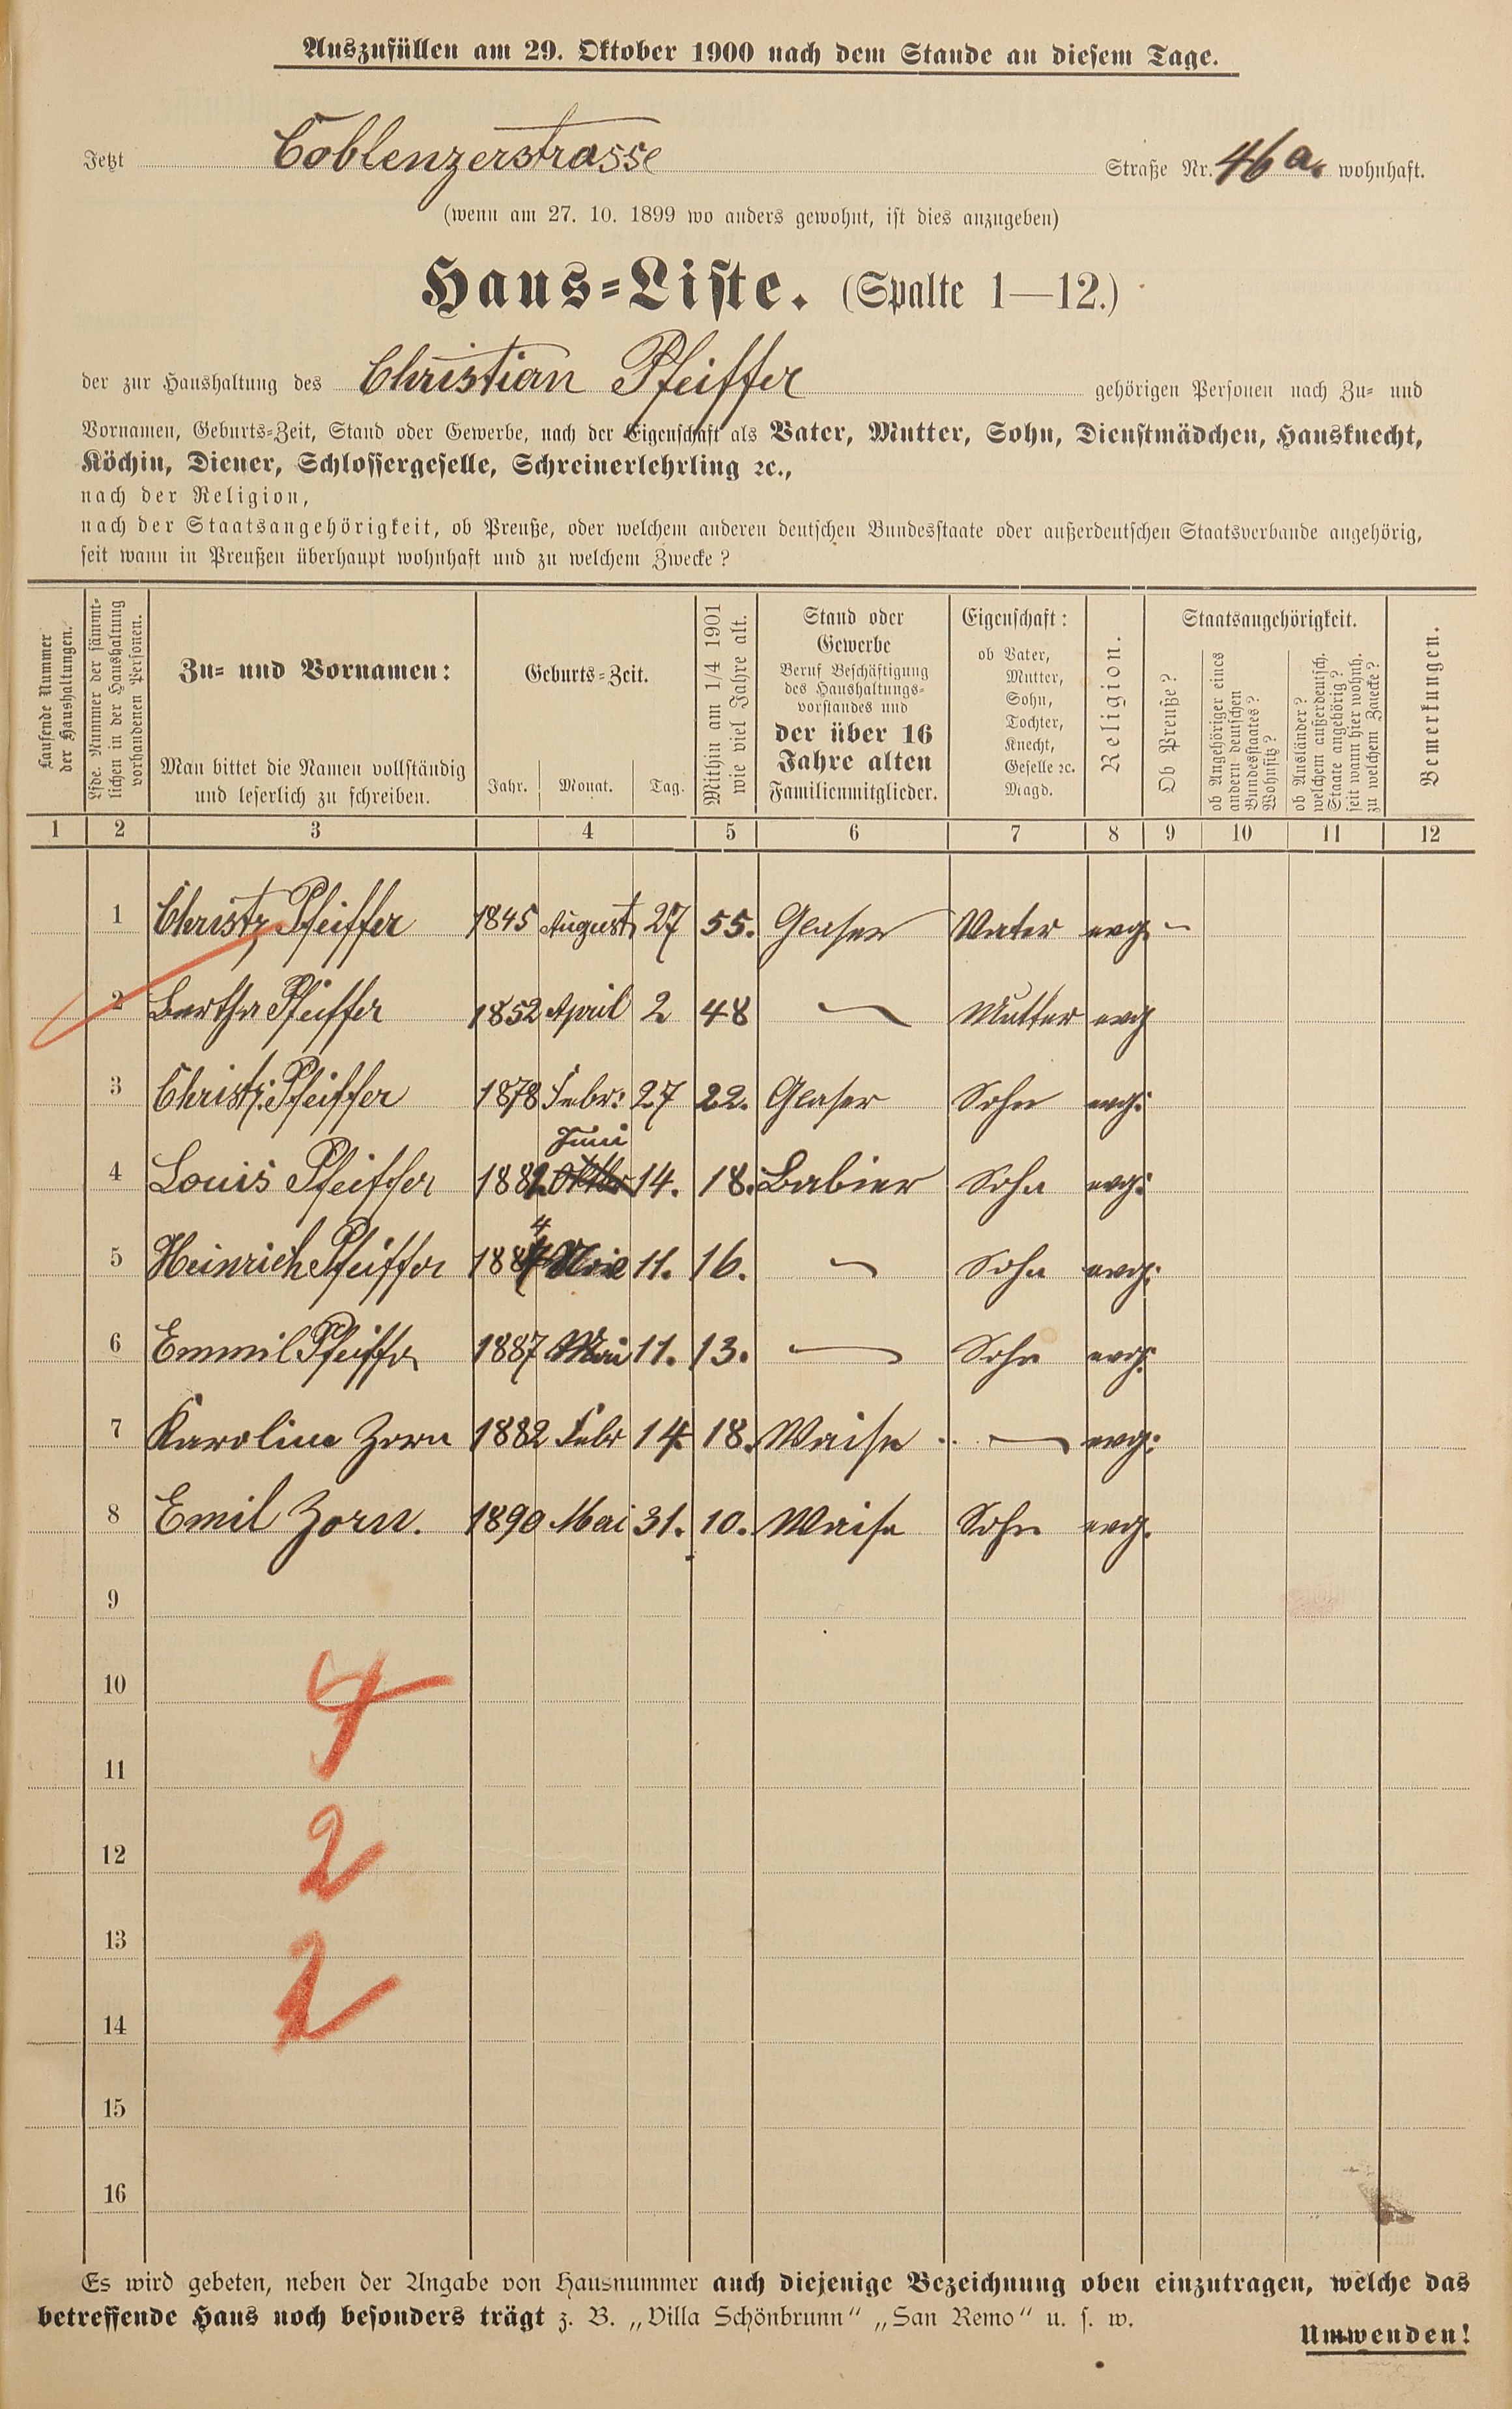 Auszufüllen am 29. Oktober 1900 nach dem Stande an diesem Tage.
Jetzt Coblenzerstrasse Straße Nr. 46 a. wohnhaft.
(wenn am 27. 10. 1899 wo anders gewohnt, ist dies anzugeben)
Haus-Liste. (Spalte 1—12.)
der zur Haushaltung des Christian Pfeiffer gehörigen Personen nach Zu- und
Vornamen, Geburts-Zeit, Stand oder Gewerbe, nach der Eigenschaft als Vater, Mutter, Sohn, Dienstmädchen, Hausknecht,
Köchin, Diener, Schlossergeselle, Schreinerlehrling ꝛc.,
nach der Religion,
nach der Staatsangehörigkeit, ob Preuße, oder welchem anderen deutschen Bundesstaate oder außerdeutschen Staatsverbande angehörig,
seit wann in Preußen überhaupt wohnhaft und zu welchem Zwecke?
Laufende Nummer
der Haushaltungen.
Lfde. Nummer der sämmt-
lichen in der Haushaltung
vorhandenen Personen.
Zu- und Vornamen:
Man bittet die Namen vollständig
und leserlich zu schreiben.
Geburts-Zeit.
Jahr. Monat. Tag.
Mithin am 1/4 1901
wie viel Jahre alt.
Stand oder
Gewerbe
Beruf Beschäftigung
des Haushaltungs-
vorstandes und
der über 16
Jahre alten
Familienmitglieder.
Eigenschaft:
ob Vater,
Mutter,
Sohn,
Tochter,
Knecht,
Geselle ꝛc.
Magd.
Religion.
Staatsangehörigkeit.
Ob Preuße?
ob Angehöriger eines
andern deutschen
Bundesstaates?
Wohnsitz?
ob Ausländer?
welchem außerdeutsch.
Staate angehörig?
seit wann hier wohnh.
zu welchem Zwecke?
Bemerkungen.
1 2 3 4 5 6 7 8 9 10 11 12
1 Christ. Pfeiffer 1845 August 27 55. Glaser Vater evg. -
2 Bertha Pfeiffer 1852 April 2 48 — Mutter evg
3 Christ. Pfeiffer 1878 Febr: 27 22. Glaser Sohn evg:
Juni
4 Louis Pfeiffer 1882 14. 18. Babier Sohn evg:
4
5 Heinrich Pfeiffer 1884 11. 16. — Sohn evg:
6 Emmil Pfeiffer 1887 Mai 11. 13. — Sohn evg:
7 Karolina Zorn 1882 Febr 14 18. Waise — evg:
8 Emil Zorn. 1890 Mai 31. 10. Waise Sohn evg.
9
10
4
11
12
2
13
2
14
15
16
Es wird gebeten, neben der Angabe von Hausnummer auch diejenige Bezeichnung oben einzutragen, welche das
betreffende Haus noch besonders trägt z. B. „Villa Schönbrunn“ „San Remo“ u. s. w.
Umwenden!